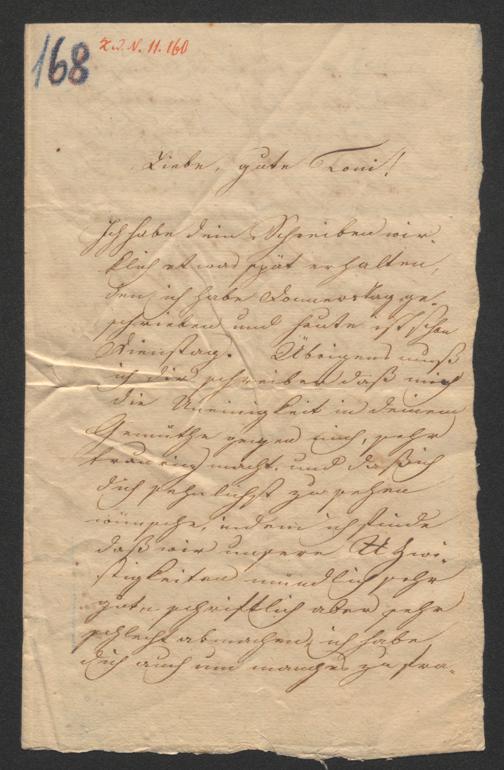 168
Z. J. N. 11.160
Liebe, gute Toni!
Ich habe dein Schreiben wir-
klich etwas spät erhalten,
den ich habe Donnerstag ge-
schrieben und heute ist schon
Dienstag. Übrigens muß
ich dir schreiben daß mich
die Uneinigkeit in deinem
Gemüthe gegen mich, sehr
traurig macht, und daß ich
dich sehnlichst zu sehen
wünsche, indem ich finde
daß wir unsere Zwi-
stigkeiten mündlich sehr
gut, schriftlich aber sehr
schlecht abmachen, ich habe
dich auch um manches zu fra-